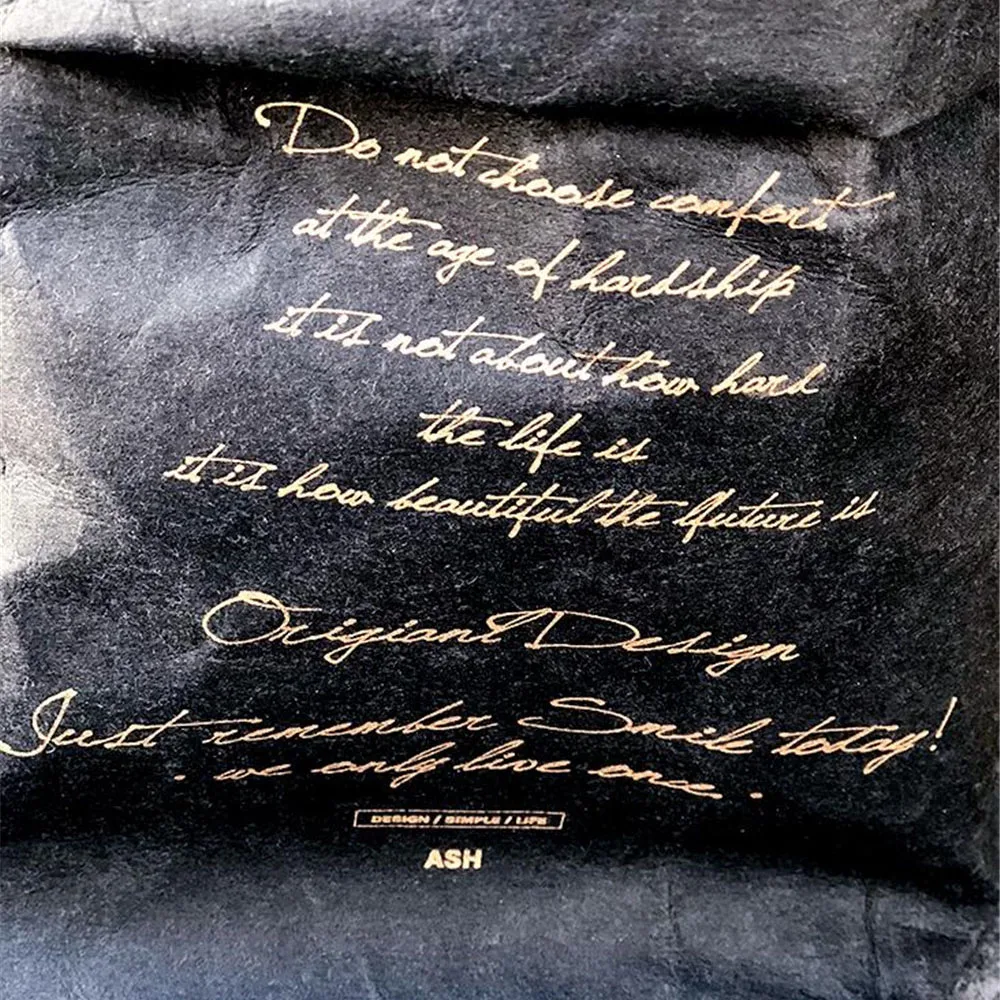 Do not choose comfort
at the age of hardship
it is not about how hard
the life is
it is how beautiful the future is
Origianl Design
Just remember Smile today!
- we only live once -
DESIGN / SIMPLE / LIFE
ASH